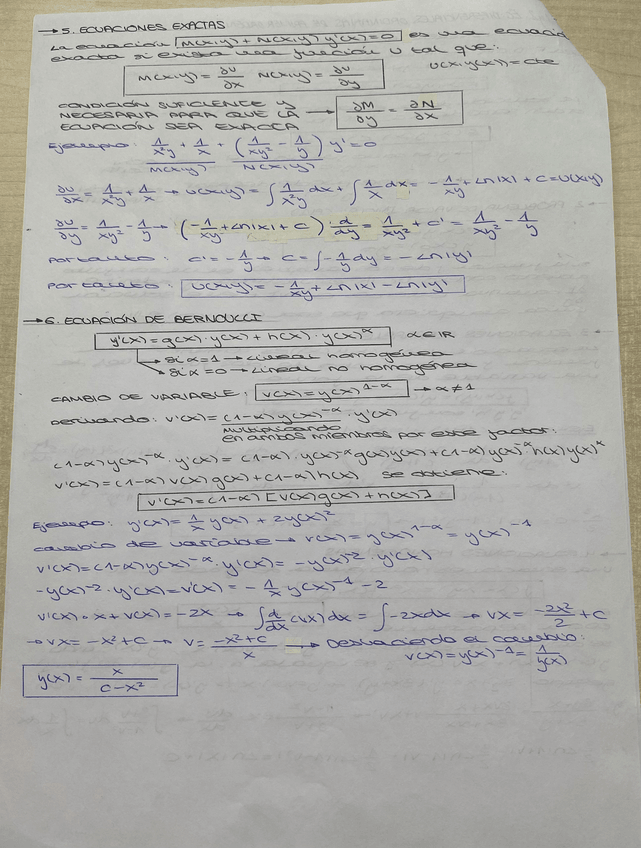 →5. ECUACIONES EXACTAS
La ecuación M(x,y)+N(x,y)y'(x)=0 es una ecuació
exacta si exista una función U tal que:
M(x,y)=∂U/∂x N(x,y)=∂U/∂y U(x,y(x))=cte
CONDICIÓN SUFICIENTE Y
NECESARIA PARA QUE LA → ∂M/∂y=∂N/∂x
ECUACIÓN SEA EXACTA
Ejemplo: 1/x²y+1/x+(1/xy²-1/y)y'=0
M(x,y) N(x,y)
∂U/∂x=1/x²y+1/x→U(x,y)=∫1/x²y dx+∫1/x dx=-1/xy+Ln|x|+C=U(x,y)
∂U/∂y=1/xy²-1/y→(-1/xy+Ln|x|+C)·d/dy=1/xy²+C'=1/xy²-1/y
Por tanto: C'=-1/y→C=∫-1/y dy=-Ln|y|
Por tanto: U(x,y)=-1/xy+Ln|x|-Ln|y|
→6. ECUACIÓN DE BERNOUCCI
y'(x)=g(x)·y(x)+h(x)·y(x)^α α∈IR
→si α=1→Lineal homogénea
→si α=0→Lineal no homogénea
CAMBIO DE VARIABLE: v(x)=y(x)^1-α →α≠1
Derivando: v'(x)=(1-α)y(x)^-α·y'(x)
Multiplicando
en ambos miembros por este factor:
(1-α)y(x)^-α·y'(x)=(1-α)·y(x)^-α g(x)y(x)+(1-α)y(x)^-α h(x)y(x)^α
v'(x)=(1-α)v(x)g(x)+(1-α)h(x) se obtiene:
v'(x)=(1-α)[v(x)g(x)+h(x)]
Ejemplo: y'(x)=1/x y(x)+2y(x)²
cambio de variable→v(x)=y(x)^1-α=y(x)^-1
v'(x)=(1-α)y(x)^-α·y'(x)=-y(x)^-2·y'(x)
-y(x)^-2·y'(x)=v'(x)=-1/x y(x)^-1-2
v'(x)·x+v(x)=-2x→∫d/dx(vx)dx=∫-2xdx→vx=-2x²/2+C
→vx=-x²+C→v=-x²+C/x→Deshaciendo el cambio:
v(x)=y(x)^-1=1/y(x)
y(x)=x/C-x²